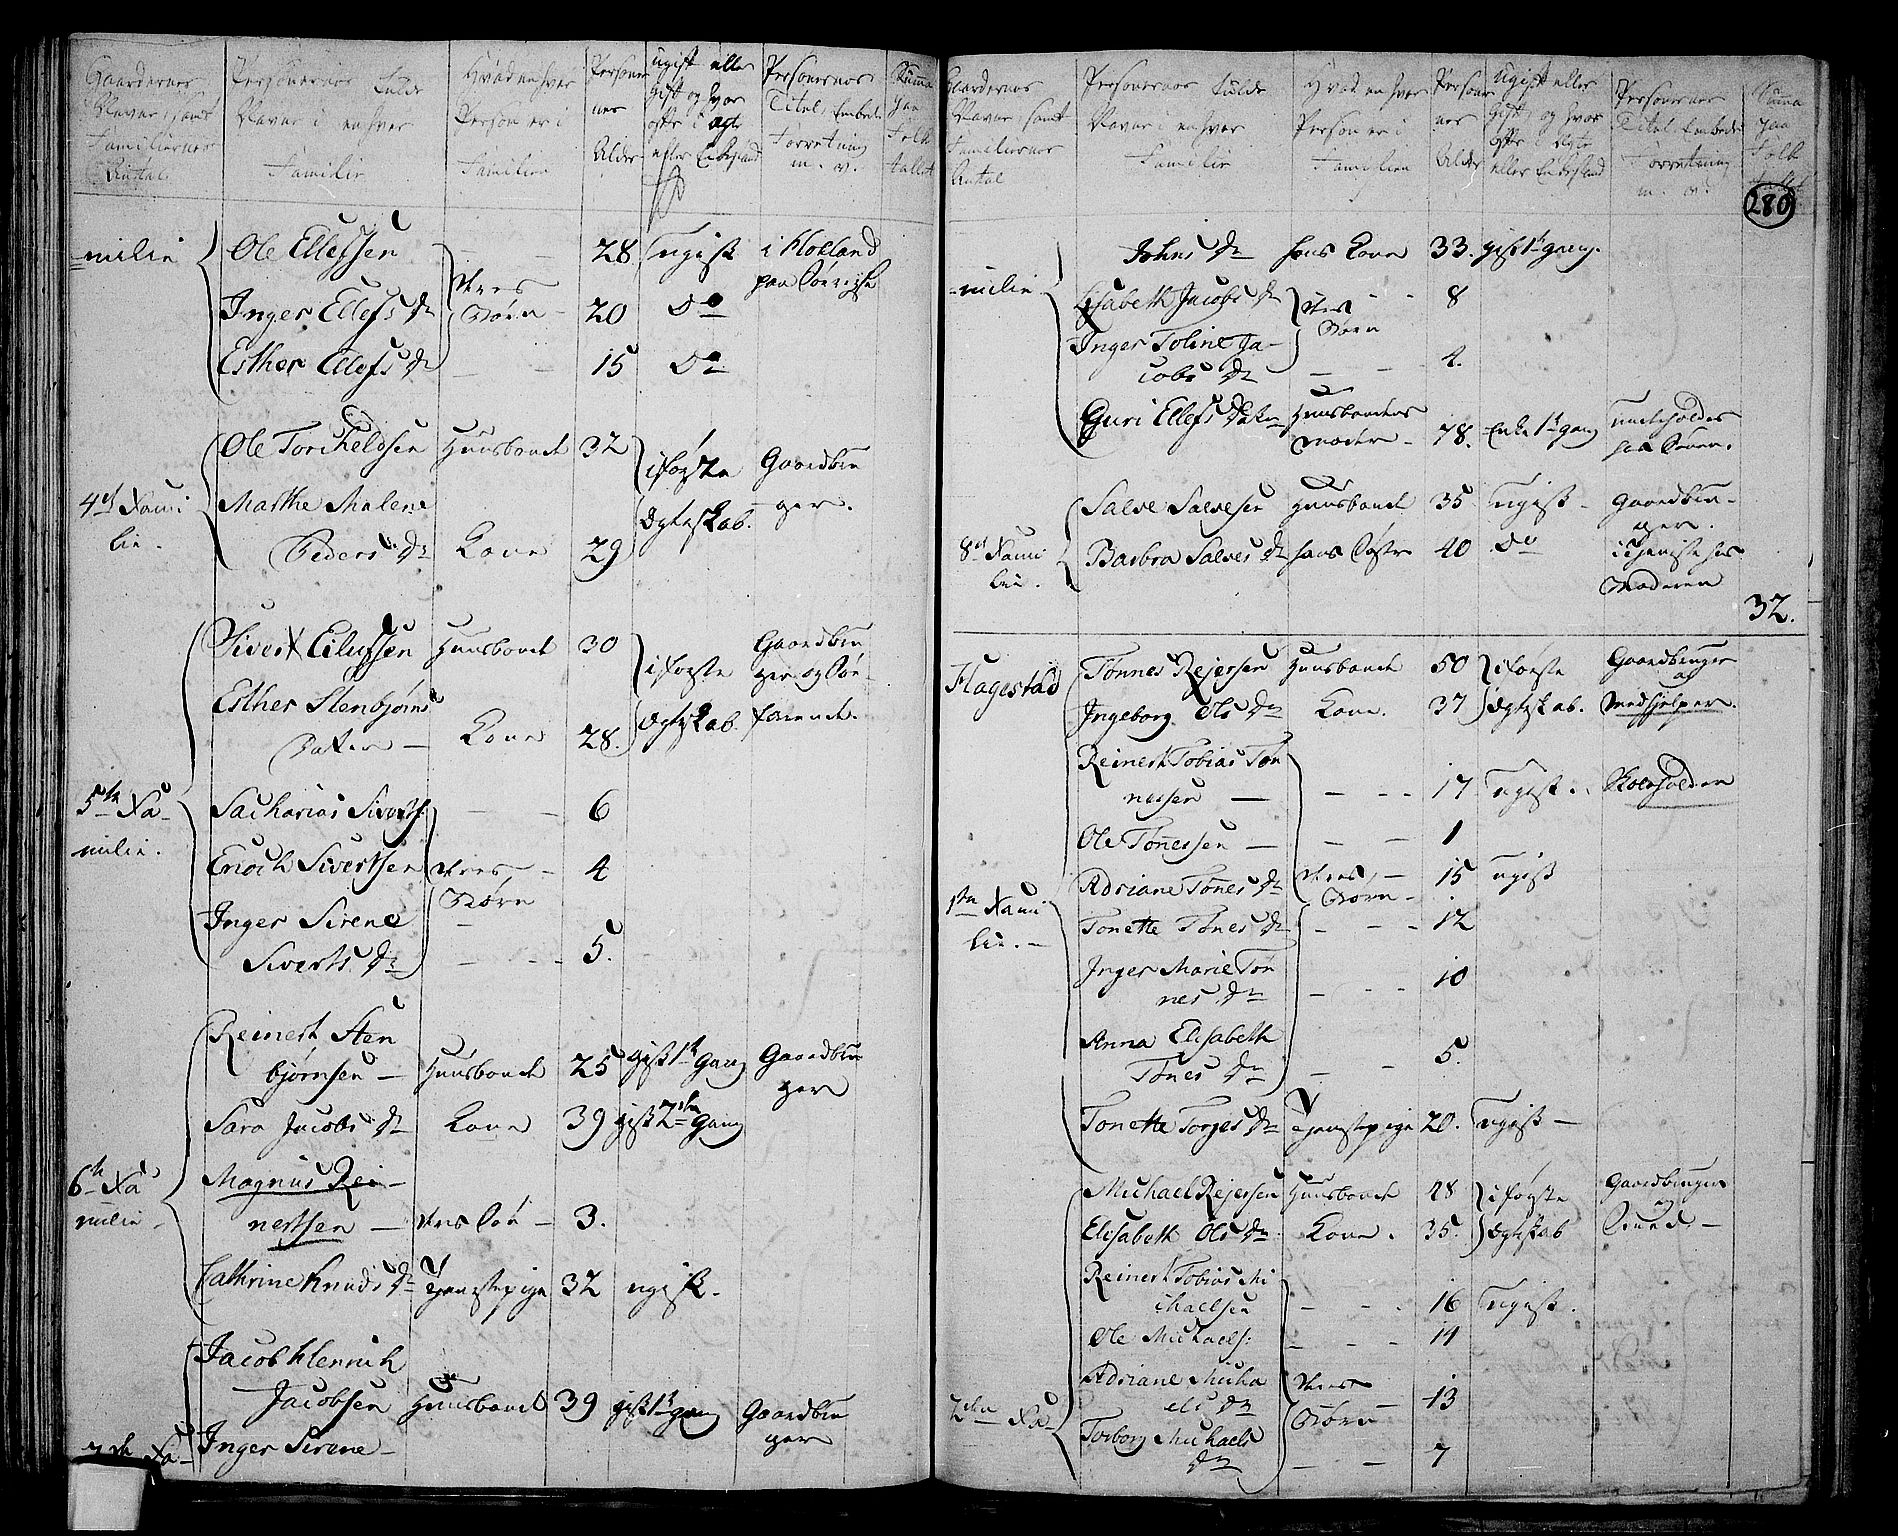 Gaardernes
Navne, samt
Familiernes
Antal
Personernes fulde
Navne i enhver
Familie
Hvad enhver
Person er i
Familien
Personer
nes
Alder
Ugift eller
Gift og hvor
ofte i Ægte
eller Enkestand
Personernes
Titel, Embede
Forretning
m. v.
Summa
paa
Folk
tallet
milie
Ole Ellefsen 28 Ugift i Holland
paa Søereise
Inger Ellefs Dr
deres
Børn
20 Do
Esther Ellefs Dr 15 Do
4de Fami
lie.
Ole Torkeldsen Huusbonde 32
i første
Ægteskab.
Gaardbru
ger.
Marthe Malene
Peders Dr Kone 29
5te Fa-
milie.
Sivert Eilufsen Huusbonde 30
i første
Ægteskab.
Gaardbru
ger og Søe-
farende.
Esther Stenbjørns
Datter Kone 28.
Sacharias Siverts: 6
Enoch Sivertsen deres
Børn
4
Inger Sirene
Siverts Dr 5.
6te Fa
milie
Reinert Sten
bjørnsen Huusbonde 25 gift 1te Gang Gaardbru
ger
Sara Jacobs Dr Kone 39 gift 2den Gang
Magnus Rei-
nertsen deres Søn 3.
Cathrine Knuds Dr Tjenestepige 32 ugift.
7de Fa-
Jacob Henrich
Jacobsen Huusbonde 39 gift 1te gang Gaardbru
ger
Inger Sirene
Gaardernes
Navne, samt
Familiernes
Antal
Personernes fulde
Navne i enhver
Familie
Hvad enhver
Person er i
Familien
Personer
nes
Alder
Ugift eller
Gift, og hvor
ofte i Ægte
eller Enkestand
Personernes
Titel Embede
Forretning
m. v.
Summa
paa
Folk
tallet
280
milie
Johns Dr hans Kone 33. gift 1te gang.
Elisabeth Jacobs Dr
deres
Børn
8
Inger Toline Ja-
cobs Dr 4.
Guri Ellefs Datter Huusbondens
moder 78. Enke 1te gang underholdes
hos Sønnen.
8de Fami
lie.
Salve Salvesen Huusbonde 35 Ugift Gaardbru-
ger.
Barbra Salves Dr hans Søster 40 Do i Tjeniste hos
Broderen
32.
Flagestad
Tønnes Rejersen Huusbonde 50 i første
Ægteskab.
Gaardbruger
og
Medhjelper.
Ingeborg Ols Dr Kone. 37
1ste Fami
lie.
Reinert Tobias Tøn
nessen 17 Ugift Skoeholden
Ole Tønessen 1
Adriane Tønes Dr deres
Børn
15 ugift
Tonette Tønes Dr 12
Inger Marie Tøn
nes Dr 10
Anna Elisabeth
Tønes Dr 5.
Tonette Torges Dr Tjenestepige 20. Ugift
2den Fa
Michael Rejersen Huusbonde 48 i første
Ægteskab
Gaardbruger
Elisabeth Ols Dr Kone. 35.
Reinert Tobias Mi
chaelsen 16 Ugift.
Ole Michaels: 14
Adriane Micha
els Dr
deres
Børn
13
Torborg Michaels
Dr 7